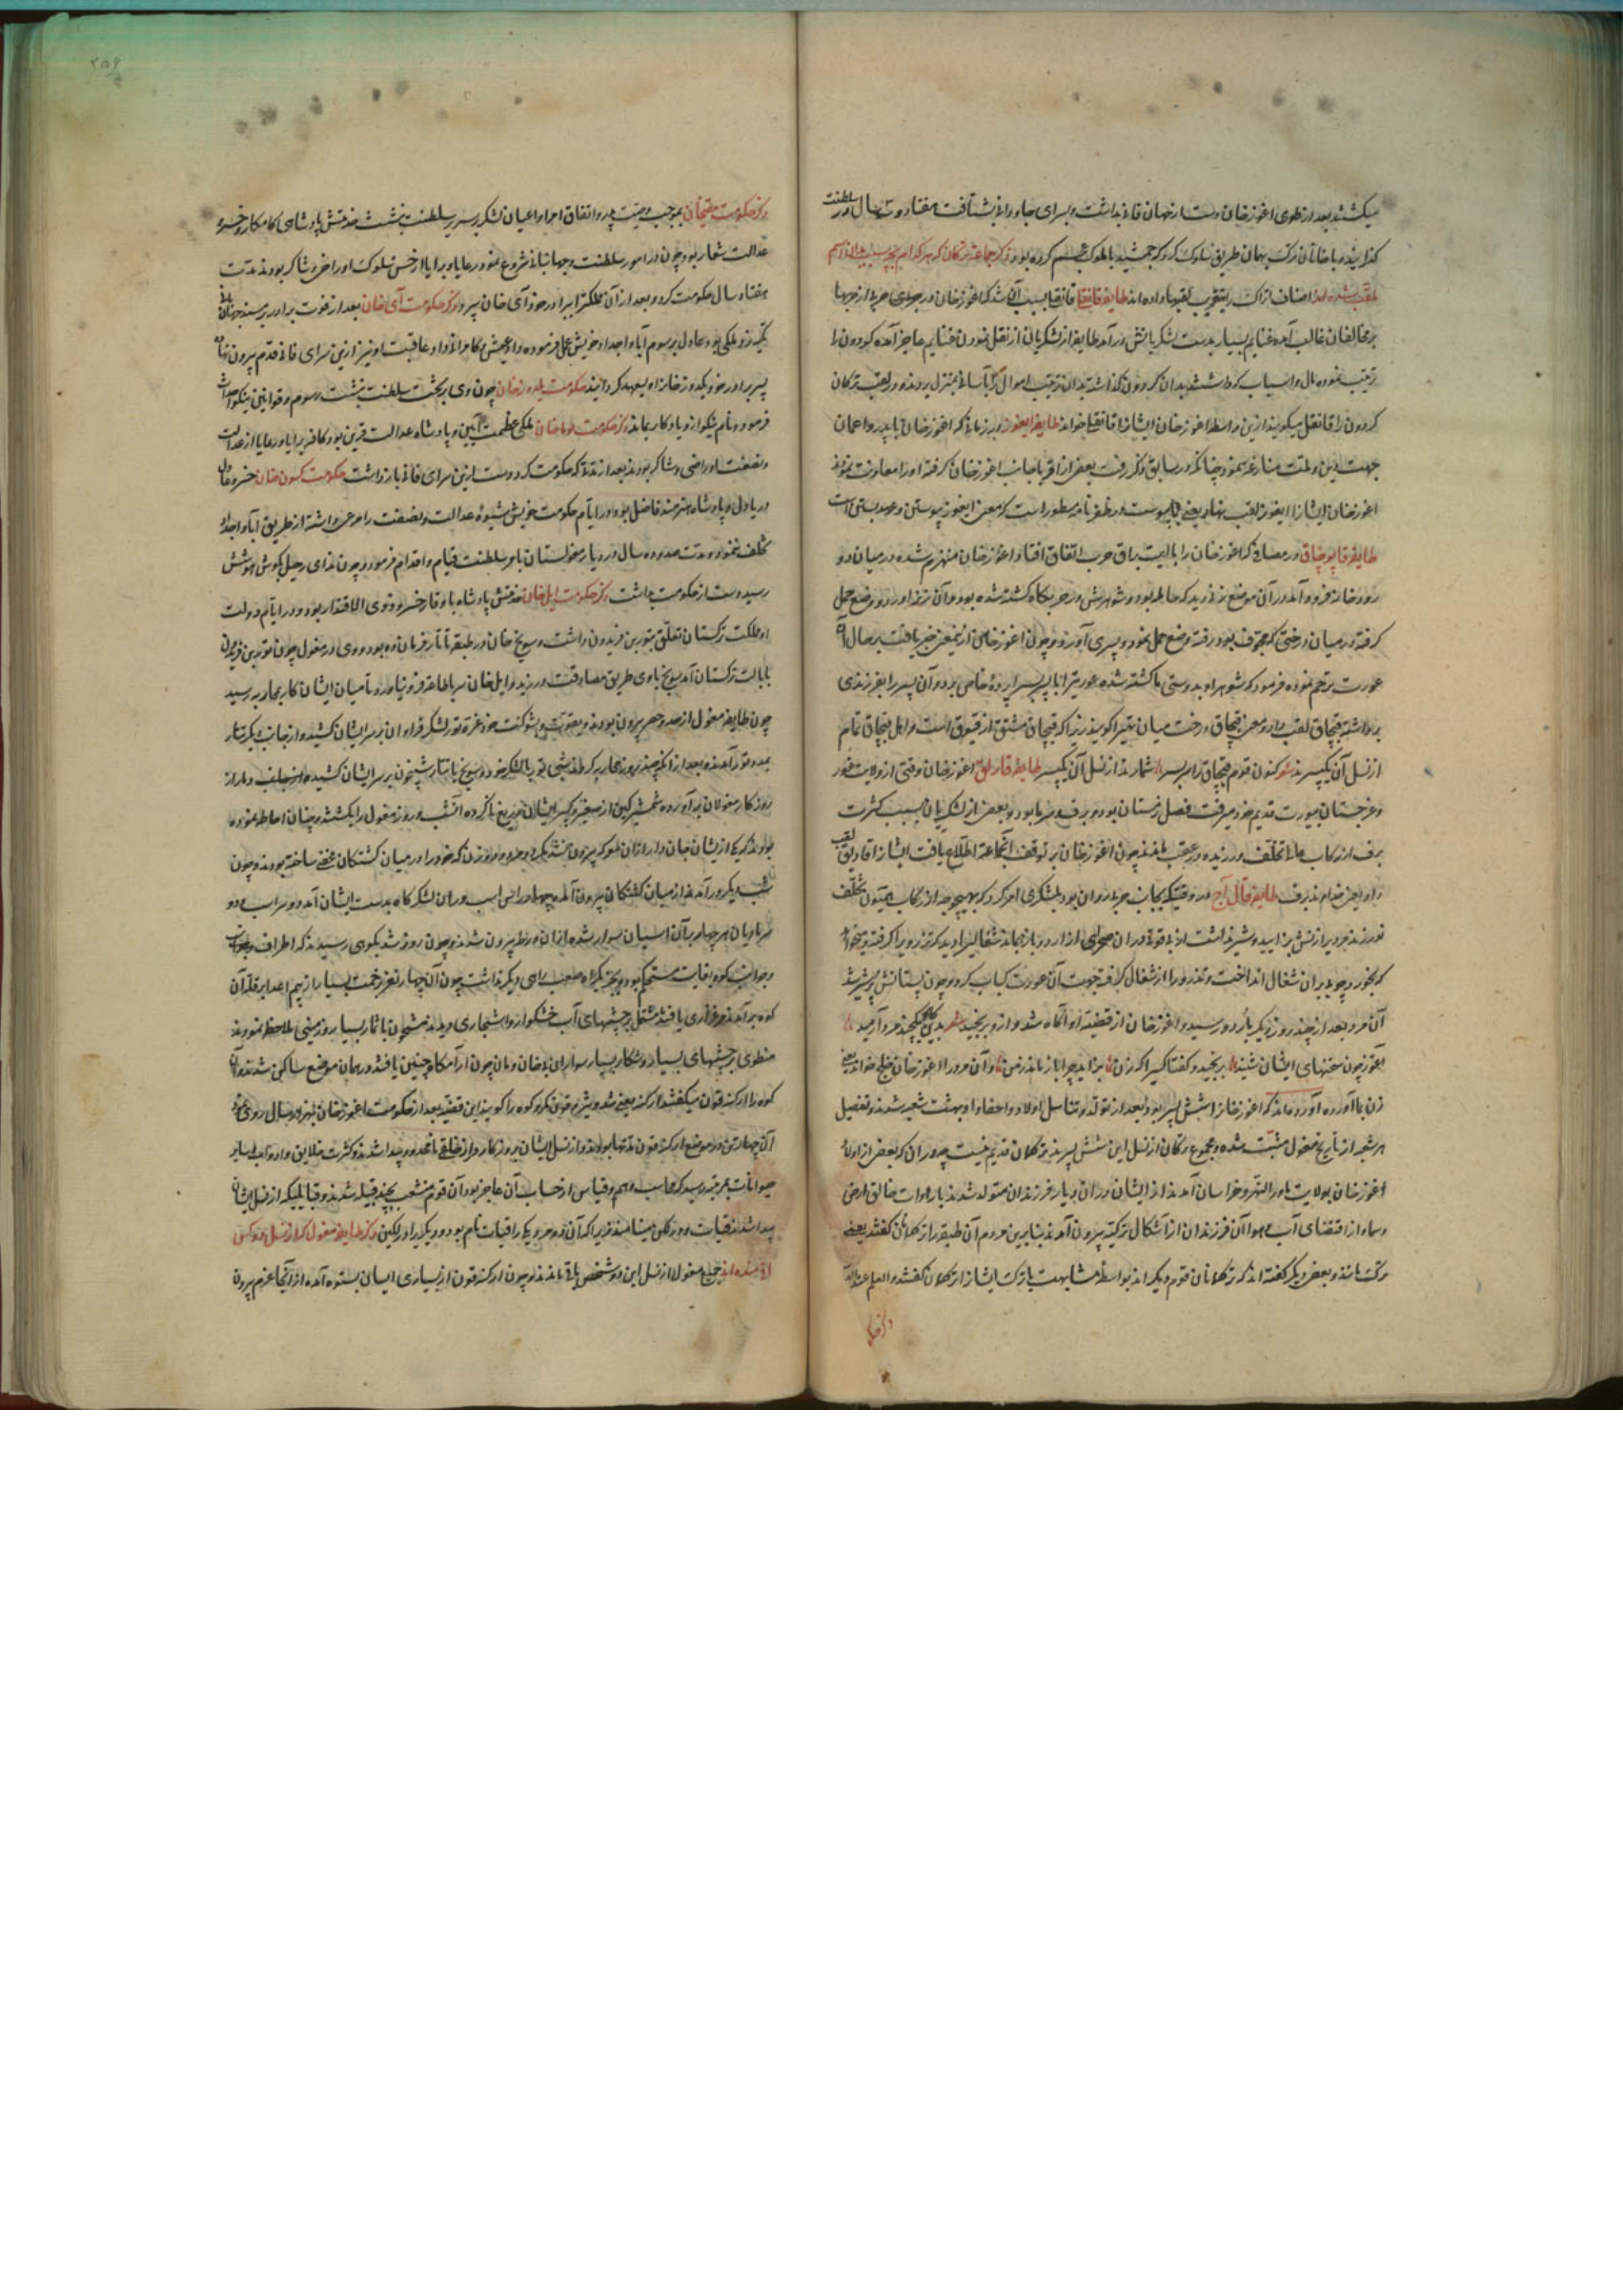 میکشتند بعد از طوی اغوز خان دست از جهان فانی بداشت و بسرای جاودانی شتافت هفتاد و سه سال در سلطنت
گذرانید و با خانان ترک بهمان طریق سلوک کرد که جمشید با ملوک عجم کرده بود ذکر جماعة ترکان که هر کدام بچه سبب بدان اسم
ملقب شده اند اصناف اتراک را بتقریب لقبها داده اند طایفه قانقلی قانقلی بسبب آن شد که اغوز خان در جوی حربی از حربها
بر مخالفان غالب آمده غنایم بسیار بدست لشکریانش در آمد طایفه از لشکریان از نقل نمودن غنایم عاجز آمده گردون را
ترتیب نموده مال و اسباب که داشتند بدان گردون گذاشتند بدان ترتیب اموال را بآسانی بمنزل بردند و در لغت ترکان
گردون را قانقلی میگویند ازین واسطه اغوز خان ایشانرا قانقلی خواند طایفه ایغور در زمانی که اغوز خان با پدر و اعمام
جهت دین و ملت منازعه نمود چنانکه در سابق ذکر رفت بعضی از اقربا جانب اغوز خان گرفته او را معاونت نمودند
اغوز خان ایشانرا ایغور لقب نهاد یعنی بما پیوست و در ظفرنامه مسطور است که معنی ایغور پیوستن و عهد بستن است
طایفه قبچاق در مصافی که اغوز خان را با ایت براق حرب اتفاق افتاد و اغوز خان منهزم شده در میان دو
رودخانه فرود آمد در آن موضع زنی دید که حامله بود و شوهرش در حربگاه کشته شده بود و آن زن را درد وضع حمل
گرفته در میان درختی که مجوف بود رفته وضع حمل نمود و پسری آورد و چون اغوز خان ازین معنی خبر یافت بر حال آن
عورت ترحم نموده فرمود که شوهر او بدوستی ما کشته شده عورت را با پسر باردوی خاص برد و آن پسر را بفرزندی
برداشته قبچاق لقب داد و معنی قبچاق درخت میان تهی را گویند زیرا که قبچاق مشتق از قبوق است و اهل قبچاق تمام
از نسل آن یک پسرند طایفه قارلق اغوز خان وقتی از ولایت غور
و غرجستان بیورت قدیم خود میرفت فصل زمستان بود و برف و سرما بود و بعضی از لشکریان بسبب کثرت
برف از رکاب عالی تخلف ورزیده در عقب ماندند چون اغوز خان بر توقف آنجماعة اطلاع یافت ایشانرا قارلق لقب
داد یعنی خداوند برف طایفه قال آج در وقتیکه بجانب حرب روان بود لشکری امر کرد که بهیچ وجه از رکاب همایون تخلف
نورزند مردی را زنش بزایید و شیر نداشت
که بخورد چوبی بدان شغال انداخت و تذرو را از شغال گرفته جهت آن عورت کباب کرد و چون پستانش پر شیر شد
آن مرد بعد از چند روز دیگر باردو رسید و اغوز خان از قضیه او آگاه شد و ازو برنجید
اغوز چون سخنهای ایشان شنید برنجید و گفت اگر کسی را زن بزاید چرا باز ماند و آن مرد را اغوز خان خلج خواند یعنی
زن با آورده آورده اند که اغوز خانرا شش پسر بود بعد از تولد و تناسل اولاد و احفاد او بهشت شعبه شدند و تفصیل
هر شعبه از تاریخ مغول مثبت شده و مجموع ترکان از نسل این شش پسرند ترکمان قدیم نیست چرا که بعضی از اولاد
اغوز خان بولایت ماوراالنهر و خراسان آمدند از ایشان در آن دیار فرزندان متولد شدند بارادت خالق ارض
و سما و از اقتضای آب و هوا آن فرزندان از آشکال ترکیه بیرون آمدند بنابرین مردم آن طبقه را ترکمان گفتند یعنی
ترک مانند و بعضی دیگر گفته اند که ترکمانان قوم دیگر اند بواسطه مشابهت با ترک ایشانرا ترکمان گفتند و العلم عند الله
ذکر حکومت
ذکر حکومت بموجب وصیت پدر و اتفاق امرا و اعیان لشکر بر سریر سلطنت نشست پادشاهی کامکار و خسرو
عدالت شعار بود چون در امور سلطنت و جهانبانی شروع نمود رعایا و برایا از حسن سلوک او راضی و شاکر بودند مدت
هفتاد سال حکومت کرد و بعد از آن مملکت را ببرادر خود آی خان سپرد ذکر حکومت آی خان بعد از فوت برادر بر مسند جهانبانی
تکیه زد ملکی بود عادل بر رسوم آبا و اجداد خویش عمل فرموده داد عیش و کامرانی داد و عاقبت او نیز ازین سرای فانی قدم بیرون نهاد
پسر برادر خود یلدوز خانرا ولیعهد گردانید حکومت یلدوز خان چون وی بر تخت سلطنت نشست رسوم و قوانین نیکو احداث
فرمود و نام نیکو ازو یادگار بماند ذکر حکومت خان ملکی عظمت آیین و پادشاه عدالت قرین بود کافه برایا و رعایا از عدالت
و نصفت او راضی و شاکر بودند بعد از مدتی که حکومت کرد دست ازین سرای فانی باز داشت حکومت خان خسرو
دریا دل و پادشاه هنرمند فاضل بود در ایام حکومت خویش شیوه عدالت و نصفت را مرعی داشته از طریق آبا و اجداد
تخلف ننمود و مدت صد و ده سال در دیار مغولستان بامر سلطنت قیام و اقدام فرمود و چون ندای رحیل بگوش هوشش
رسید دست از حکومت بداشت ذکر حکومت ایل خان پادشاه با وقار خسرو قوی الاقتدار بود و در ایام دولت
او مملکت ترکستان تعلق بتور بن فریدون داشت و سونج خان در طبقه تاتار فرمان ده بود و وی در مغول چون تور بن فریدون
بایالت ترکستان آمد سونج با وی طریق مصادقت ورزید و ایل خان سر باطاعت او فرو نیاورد تا میان ایشان کار بمحاربه رسید
چون طایفه مغول از حد و حصر بیرون بودند و بقوت و شوکت خود غره تور لشکر فراوان بر سر ایشان کشید و از جانب دیگر تاتار
بمدد تور آمدند و بعد از آنکه چند روز محاربه کردند شبی تور با لشکر خود و سونج با تاتار شبیخون بر سر ایشان کشیده دمار از
روزگار مغولان برآورده شمشیر کین از صغیر و کبیر ایشان دریغ ناکرده آنشب و روز مغول را بکشتند و چنان احاطه نموده
بودند که یکی از ایشان جان دو مرد و دو زن که خود را در میان کشتگان مخفی ساخته بودند و چون
شب دیگر در آمد از میان کشتگان بیرون آمده چهار راس اسب در آن لشکرگاه بدست ایشان آمد و سراب دو
هر چهار بر آن اسپان سوار شده از آن ورطه بیرون شدند و چون روز شد بکوهی رسیدند که اطراف و جوانب
و جوانب کوه بغایت مستحکم بود و بجز یکراه صعب راهی دیگر نداشت چون آن چهار نفر بزحمت بسیار از بیم اعدا بر قله آن
کوه برآمدند مرغزاری یافتند مشتمل بر چشمهای آب خشکوار و اشجاری دیدند مشحون باثمار بسیار و زمینی ملاحظه نمودند
منطوی بر چشمهای بسیار و شکار بسیار چون آرامگاه چنین یافتند در همان موضع ساکن شدند و آن
کوه را ارکنه قون میگفتند ارکنه یعنی تند و تیز و قون کمر کوه را گویند این قضیه بعد از حکومت اغوز خان بهزار سال روی نمود
آن چهار تن در موضع ارکنه قون مدتها بودند و از نسل ایشان بروزگار دراز خلقی نامعدود پیدا شدند و کثرت خلایق و دواب و سایر
حیوانات بمرتبه رسید که محاسب وهم و قیاس از حساب آن عاجز بود آن قوم منشعب بچند قبیله شدند و قبایلیکه از نسل ایشان
پیدا شدند قیات و درلکین مینامند زیرا که آن دو مرد یکی را قیات نام بود و دیگری را درلکین ذکر طایفه مغول که از نسل دو کس
اند جمیع مغول از نسل این دو شخص باقی ماندند و چون در ارکنه قون از بسیاری بستوه آمده از آنجا عزم بیرون